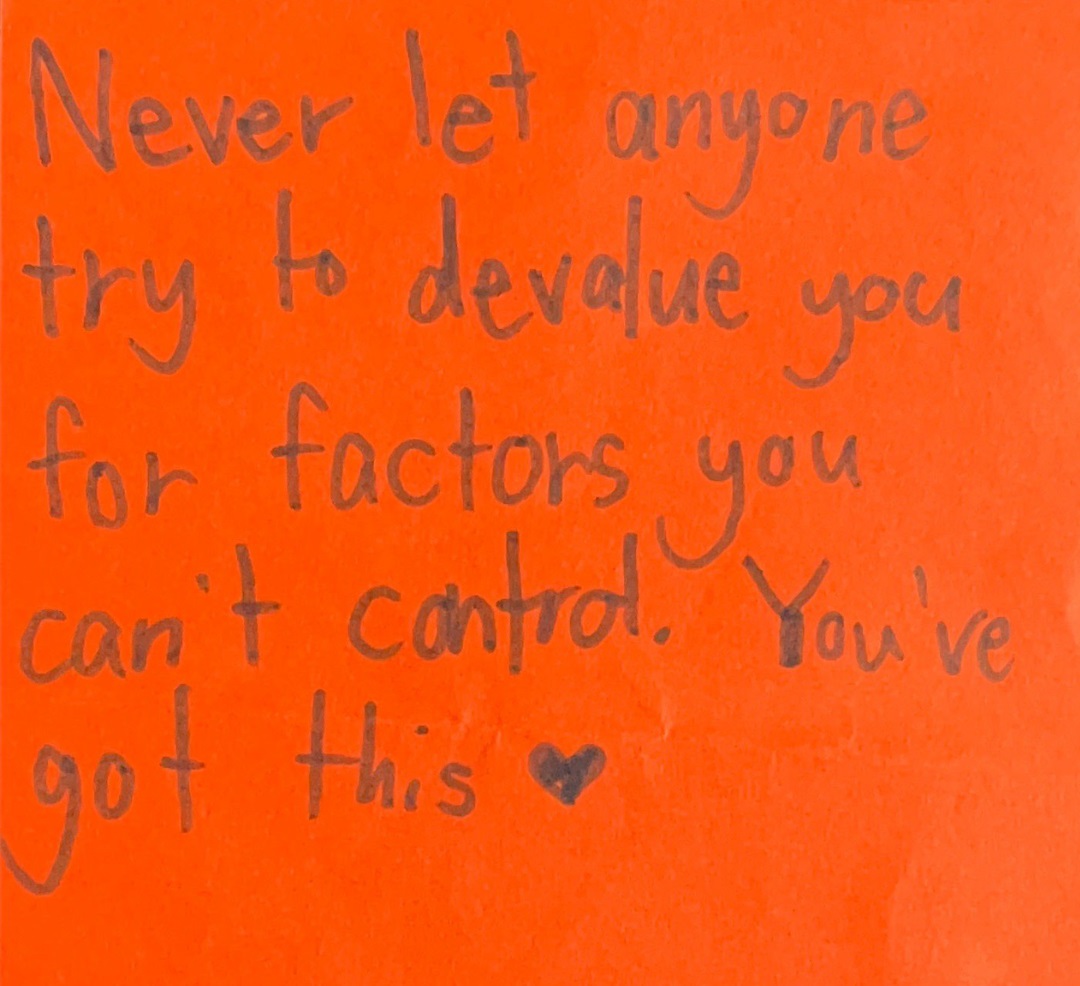 Never let anyone
try to devalue you
for factors you
can't control. You've
got this ♥